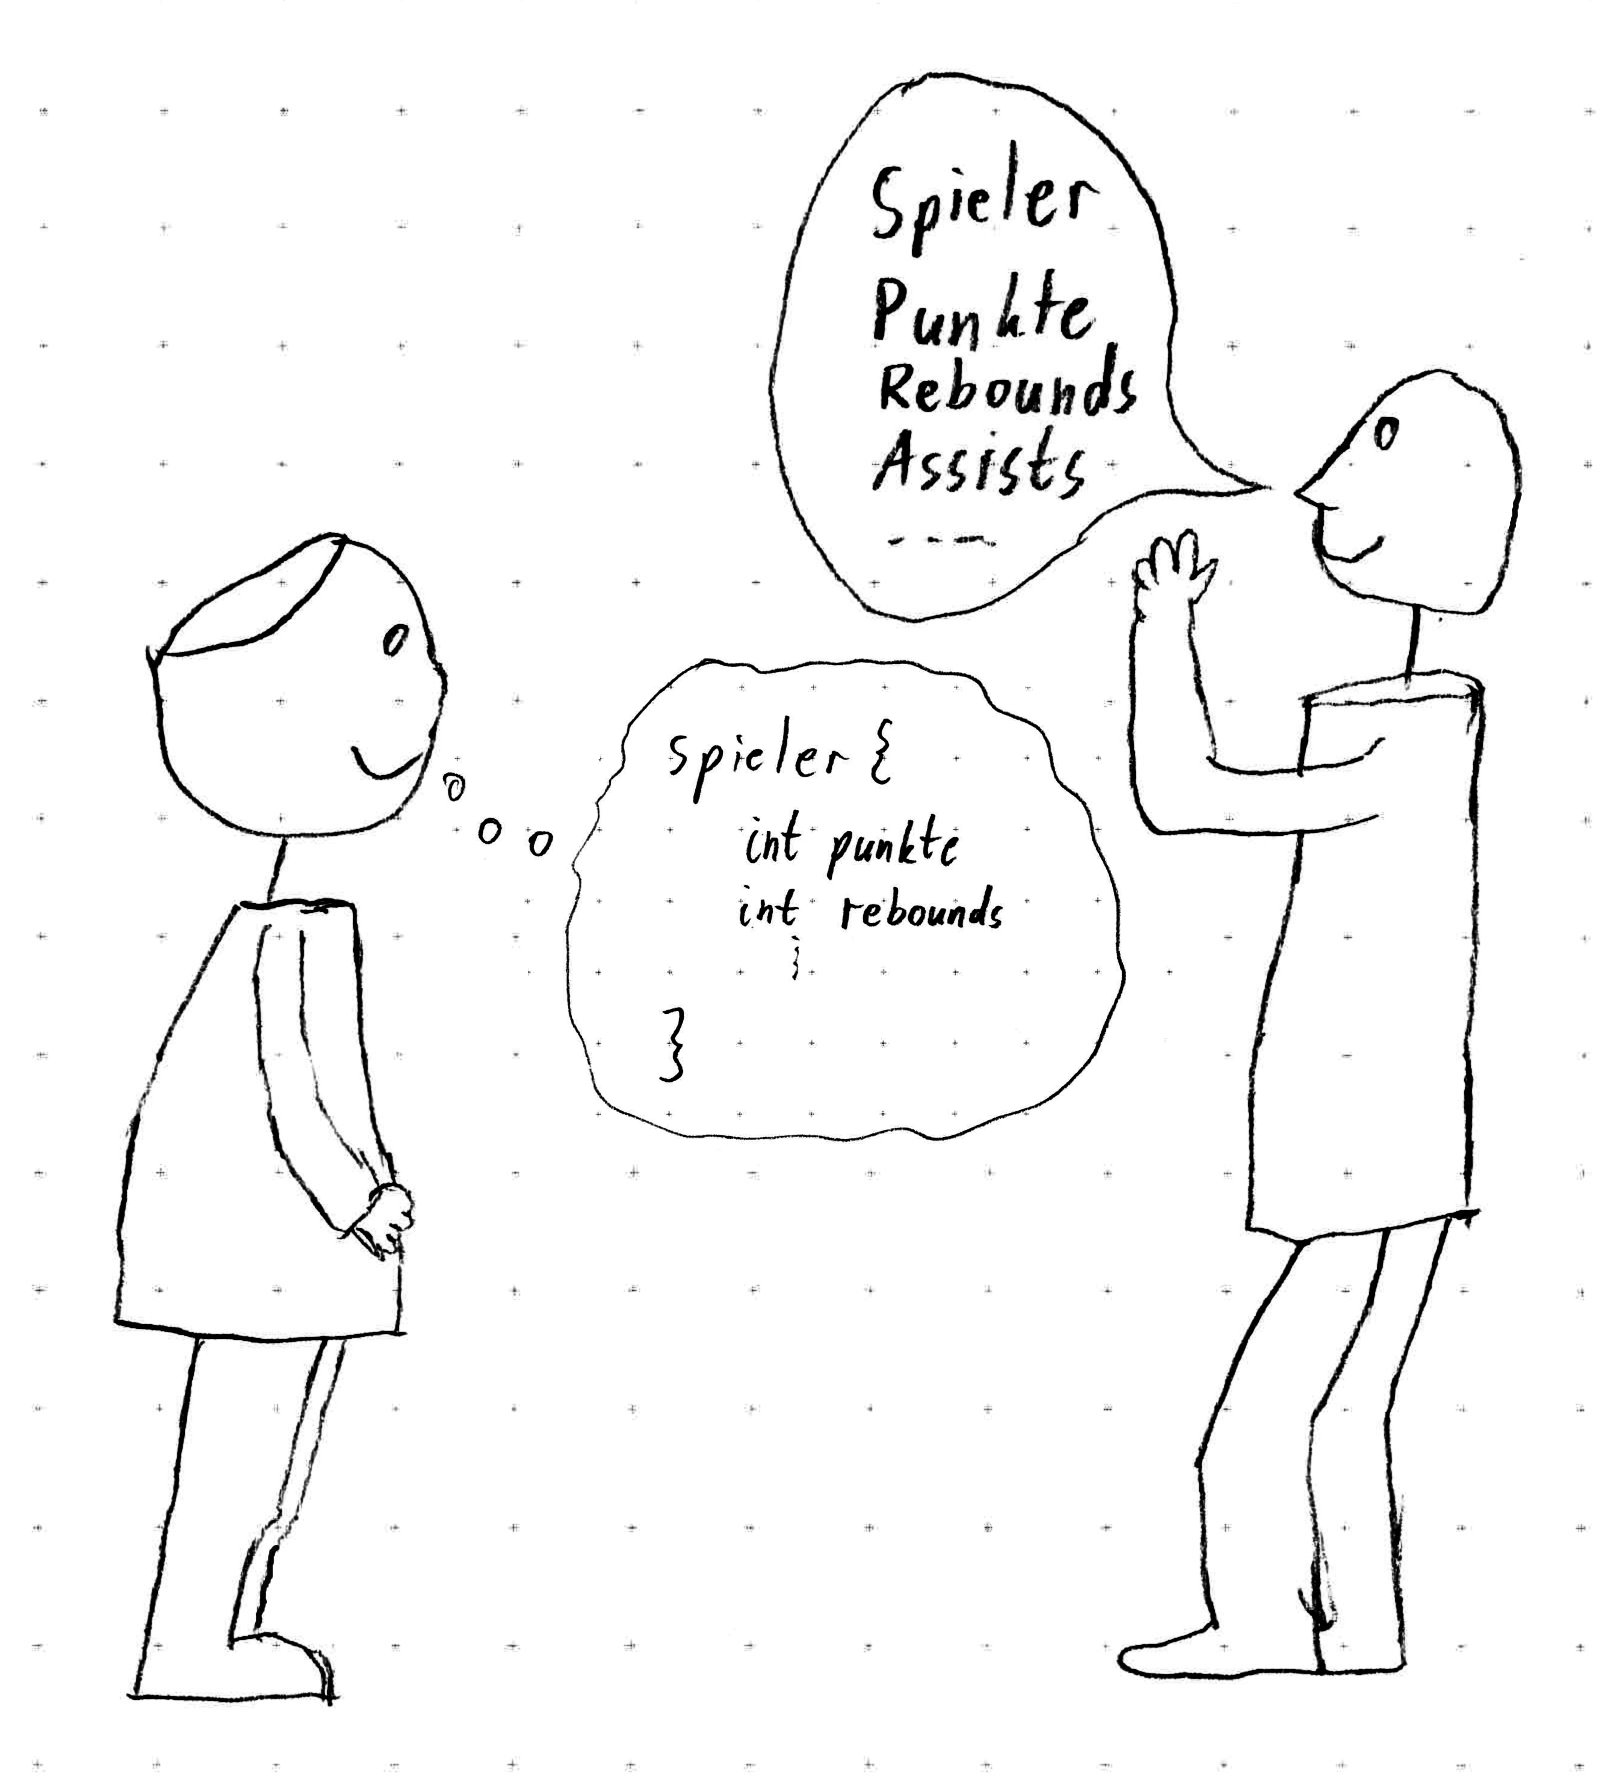 Spieler
Punkte
Rebounds
Assists
----
spieler {
int punkte
int rebounds
⋮
}